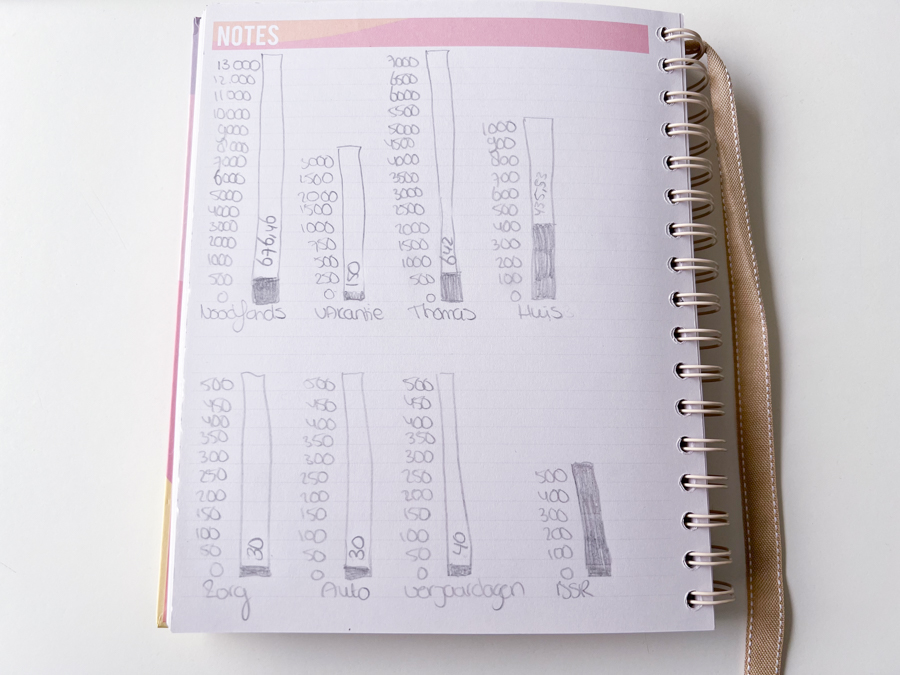 NOTES
13.000
12.000
11.000
10.000
9000
8000
7000
6000
5000
4000
3000
2000
1000
500
0
676,46
Noodfonds
3000
2500
2000
1500
1000
750
500
250
0
150
Vakantie
7000
6500
6000
5500
5000
4500
4000
3500
3000
2500
2000
1500
1000
500
0
642
Thomas
1000
900
800
700
600
500
400
300
200
100
0
Huis
500
450
400
350
300
250
200
150
100
50
0
30
Zorg
500
450
400
350
300
250
200
150
100
50
0
30
Auto
500
450
400
350
300
250
200
150
100
50
0
40
Verjaardagen
500
400
300
200
100
0
BSR